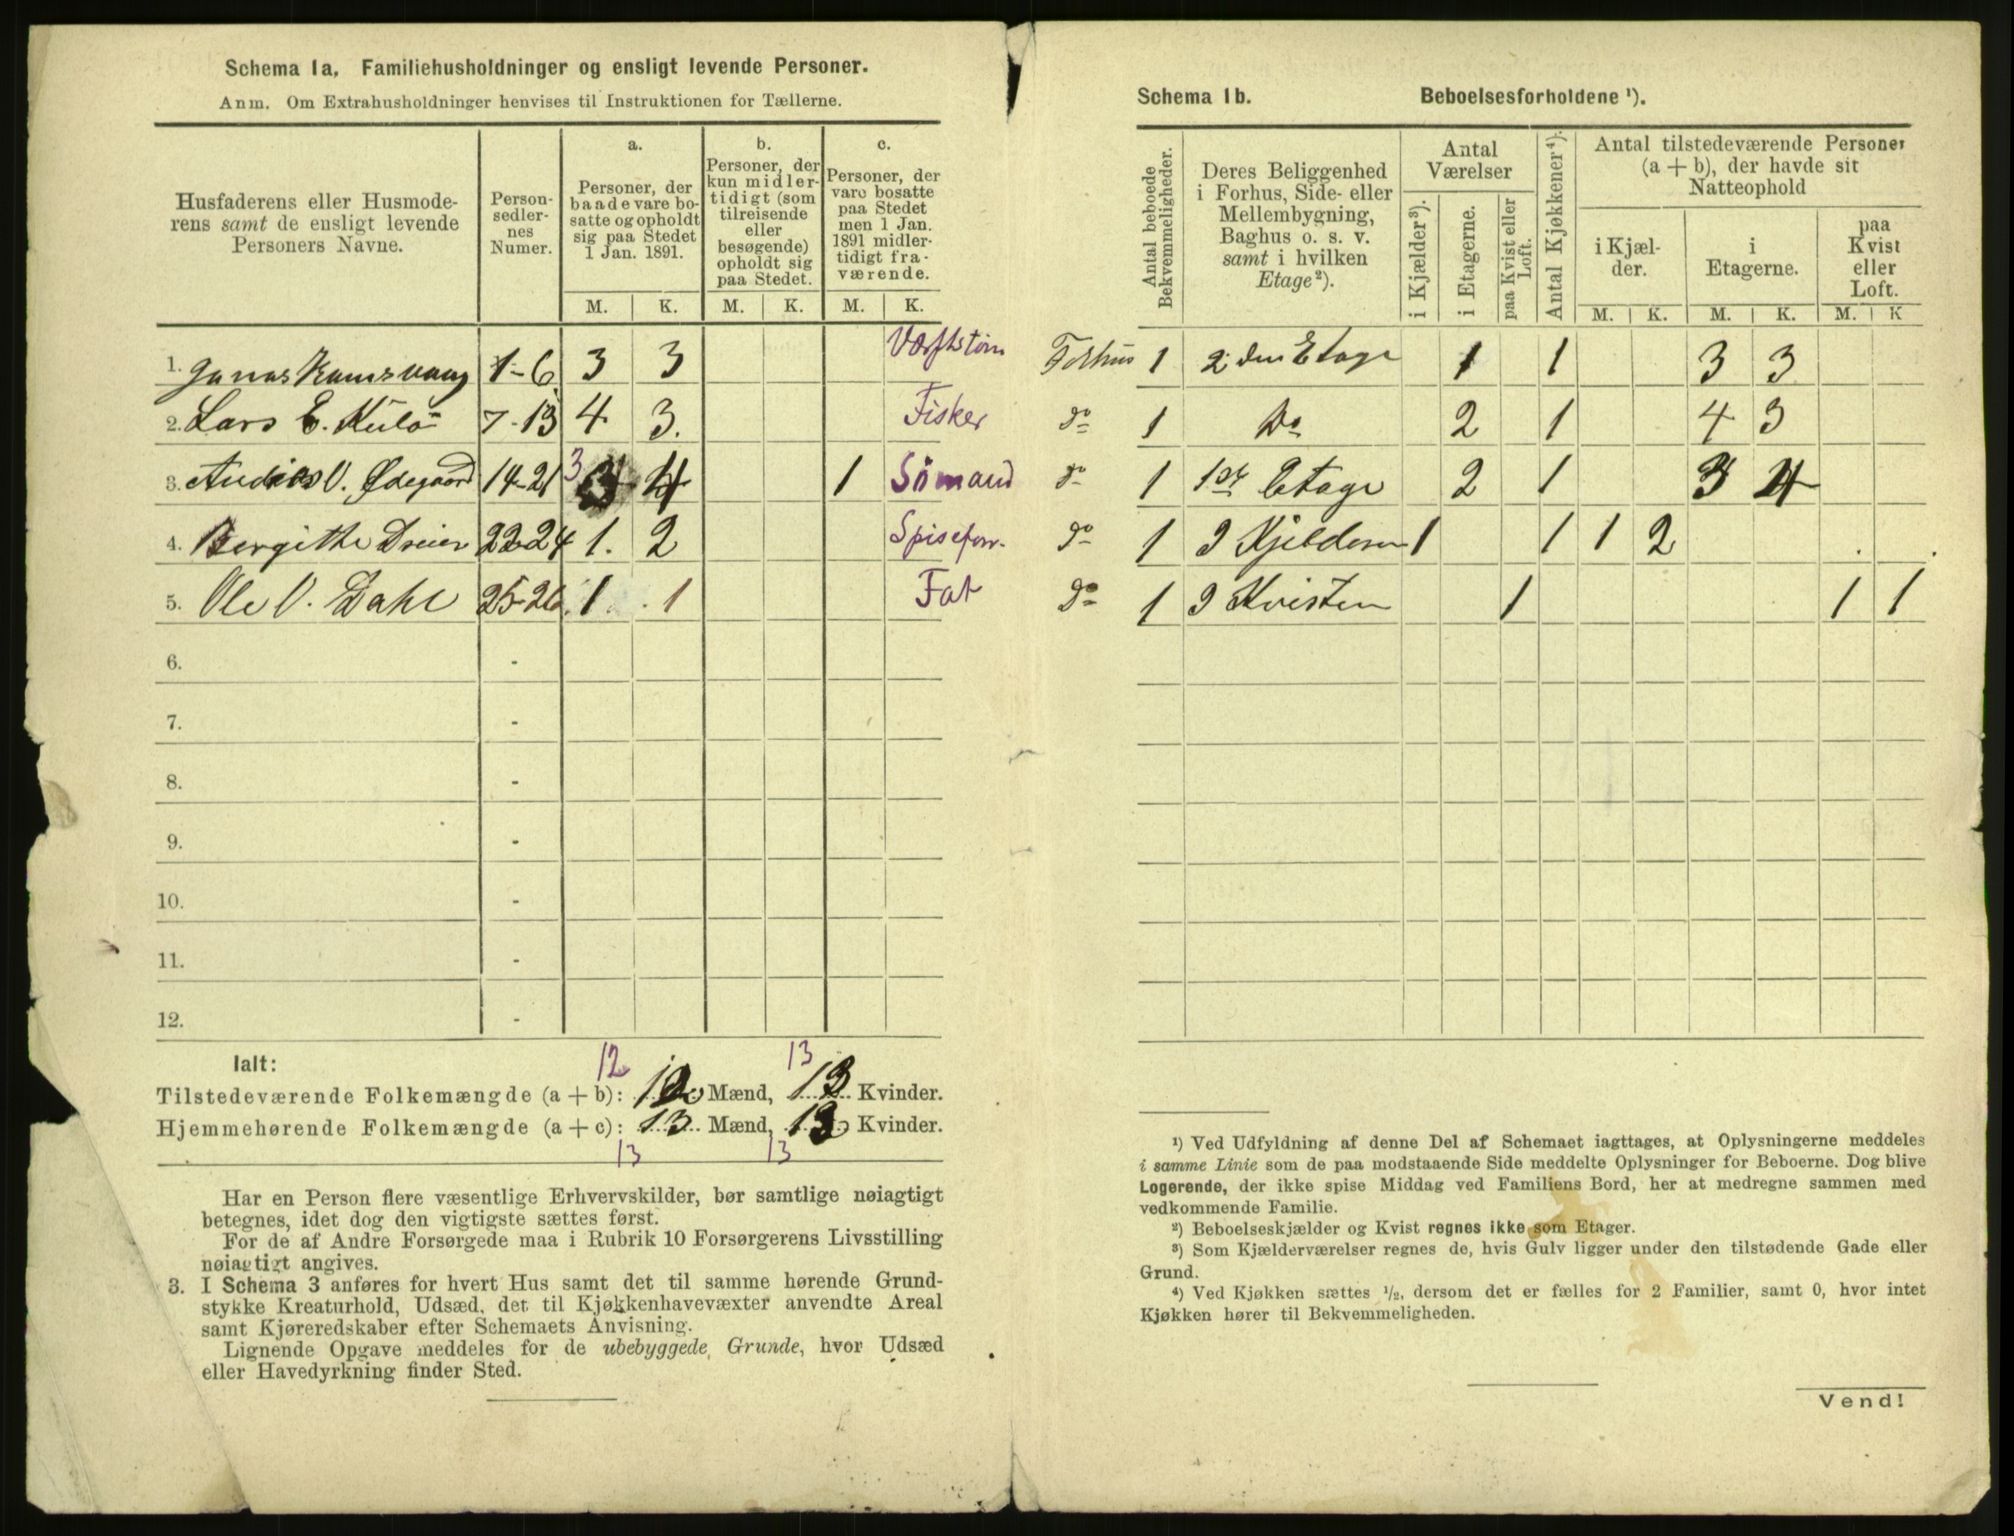 Schema 1a. Familiehusholdninger og ensligt levende Personer.
Anm. Om Extrahusholdninger henvises til Instruktionen for Tællerne.
Husfaderens eller Husmode-
rens samt de ensligt levende
Personers Navne.
Person-
sedler-
nes
Numer.
a.
Personer, der
baade vare bo-
satte og opholdt
sig paa Stedet
1 Jan. 1891.
b.
Personer, der
kun midler-
tidigt (som
tilreisende
eller
besøgende)
opholdt sig
paa Stedet.
c.
Personer, der
vare bosatte
paa Stedet
men 1 Jan.
1891 midler-
tidigt fra-
værende.
M. K. M. K. M. K.
1. Jonas Ramsvaag 1-6 3 3
2. Lars E. Kulø 7-13 4 3. Fisker
3. Andreas V. Ødegaard 14-21 3 4 1 Sömand
4. Bergithe Dreier 22-24 1. 2 Spisefor.
5. Ole V. Dahl 25-26. 1 1 Fat
6. -
7. -
8. -
9. -
10. -
11. -
12. -
Ialt:
12 13
Tilstedeværende Folkemængde (a + b): 12 Mænd, 13 Kvinder.
Hjemmehørende Folkemængde (a + c): 13 Mænd, 13 Kvinder.
13 13
Har en Person flere væsentlige Erhvervskilder, bør samtlige nøiagtigt
betegnes, idet dog den vigtigste sættes først.
For de af Andre Forsørgede maa i Rubrik 10 Forsørgerens Livsstilling
nøiagtigt angives.
3. I Schema 3 anføres for hvert Hus samt det til samme hørende Grund-
stykke Kreaturhold, Udsæd, det til Kjøkkenhavevæxter anvendte Areal
samt Kjøreredskaber efter Schemaets Anvisning.
Lignende Opgave meddeles for de ubebyggede Grunde, hvor Udsæd
eller Havedyrkning finder Sted.
Schema 1b. Beboelsesforholdene ¹).
Antal beboede
Bekvemmeligheder.
Deres Beliggenhed
i Forhus, Side- eller
Mellembygning,
Baghus o. s. v.
samt i hvilken
Etage²).
Antal
Værelser
i Kjælder³).
i Etagerne.
paa Kvist eller
Loft.
Antal Kjøkkener⁴).
Antal tilstedeværende Personer
(a + b), der havde sit
Natteophold
i Kjæl-
der.
i
Etagerne.
paa
Kvist
eller
Loft.
M. K. M. K. M. K
Forhus 1 2den Etage 1 1 3 3
do 1 Do 2 1 4 3
do 1 1ste Etage 2 1 3 4
do 1 I Kjelderen 1 1 1 2
do 1 I Kvisten 1 1 1
¹) Ved Udfyldning af denne Del af Schemaet iagttages, at Oplysningerne meddeles
i samme Linie som de paa modstaaende Side meddelte Oplysninger for Beboerne. Dog blive
Logerende, der ikke spise Middag ved Familiens Bord, her at medregne sammen med
vedkommende Familie.
²) Beboelseskjælder og Kvist regnes ikke som Etager.
³) Som Kjælderværelser regnes de, hvis Gulv ligger under den tilstødende Gade eller
Grund.
⁴) Ved Kjøkken sættes ½, dersom det er fælles for 2 Familier, samt 0, hvor intet
Kjøkken hører til Bekvemmeligheden.
Vend!